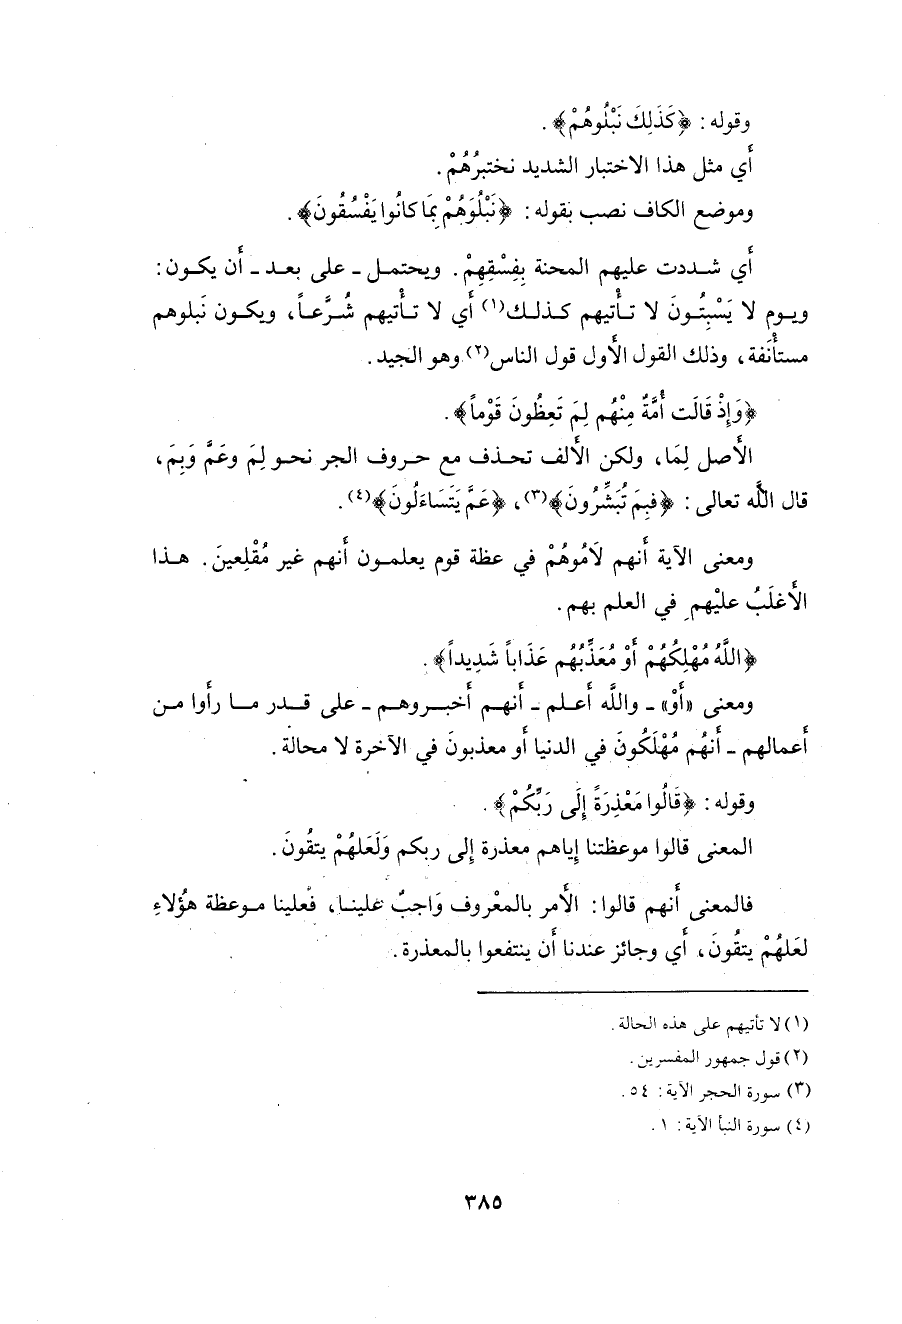 وقوله: ﴿كَذَلِكَ نَبْلُوهُمْ﴾.
أَي مثل هذا الاختبار الشديد نختبرُهُمْ.
وموضع الكاف نصب بقوله: ﴿نَبْلُوَهُمْ بِمَا كانُوا يَفْسُقُونَ﴾.
أَي شددت عليهم المحنة بِفِسْقِهِمْ. ويحتمل ـ على بعد ـ أَن يكون:
ويوم لا يَسْبِتُونَ لا تأْتيهم كذلك(١) أَي لا تأْتيهم شُرَّعاً، ويكون نَبلوهم
مستأْنَفة، وذلك القول الأَول قول الناس(٢) وهو الجيد.
﴿وَإِذْ قَالَت أُمَّةٌ مِنْهُم لِمَ تَعِظُونَ قَوْماً﴾.
الأَصل لِمَا، ولكن الأَلف تحذف مع حروف الجر نحو لِمَ وعَمَّ وَبِمَ،
قال اللَّه تعالى: ﴿فَبِمَ تُبَشِّرُونَ﴾(٣)، ﴿عَمَّ يَتَسَاءَلُونَ﴾(٤).
ومعنى الآية أَنهم لَامُوهُمْ في عظة قوم يعلمون أَنهم غير مُقْلِعينَ. هذا
الأَغلَبُ عليْهِم في العلم بهم.
﴿اللَّهُ مُهْلِكُهُمْ أَوْ مُعَذِّبُهُم عَذَاباً شَدِيداً﴾.
ومعنى «أَوْ» ـ واللَّه أَعلم ـ أَنهم أَخبروهم ـ على قدر ما رأَوا من
أَعمالهم ـ أَنهُم مُهْلَكُونَ في الدنيا أَو معذبونَ في الآخرة لا محالة.
وقوله: ﴿قَالُوا مَعْذِرَةً إِلَى رَبِّكُمْ﴾.
المعنى قالوا موعظتنا إِياهم معذرة إِلى ربكم وَلَعَلهُمْ يتقُونَ.
فالمعنى أَنهم قالوا: الأَمر بالمعْروف وَاجبٌ علينا، فعلينا موعظة هؤُلاءِ
لعَلهُمْ يتقُونَ، أَي وجائز عندنا أَن ينتفعوا بالمعذرة.
(١) لا تأتيهم على هذه الحالة.
(٢) قول جمهور المفسرين.
(٣) سورة الحجر الآية: ٥٤.
(٤) سورة النبأ الآية: ١.
٣٨٥